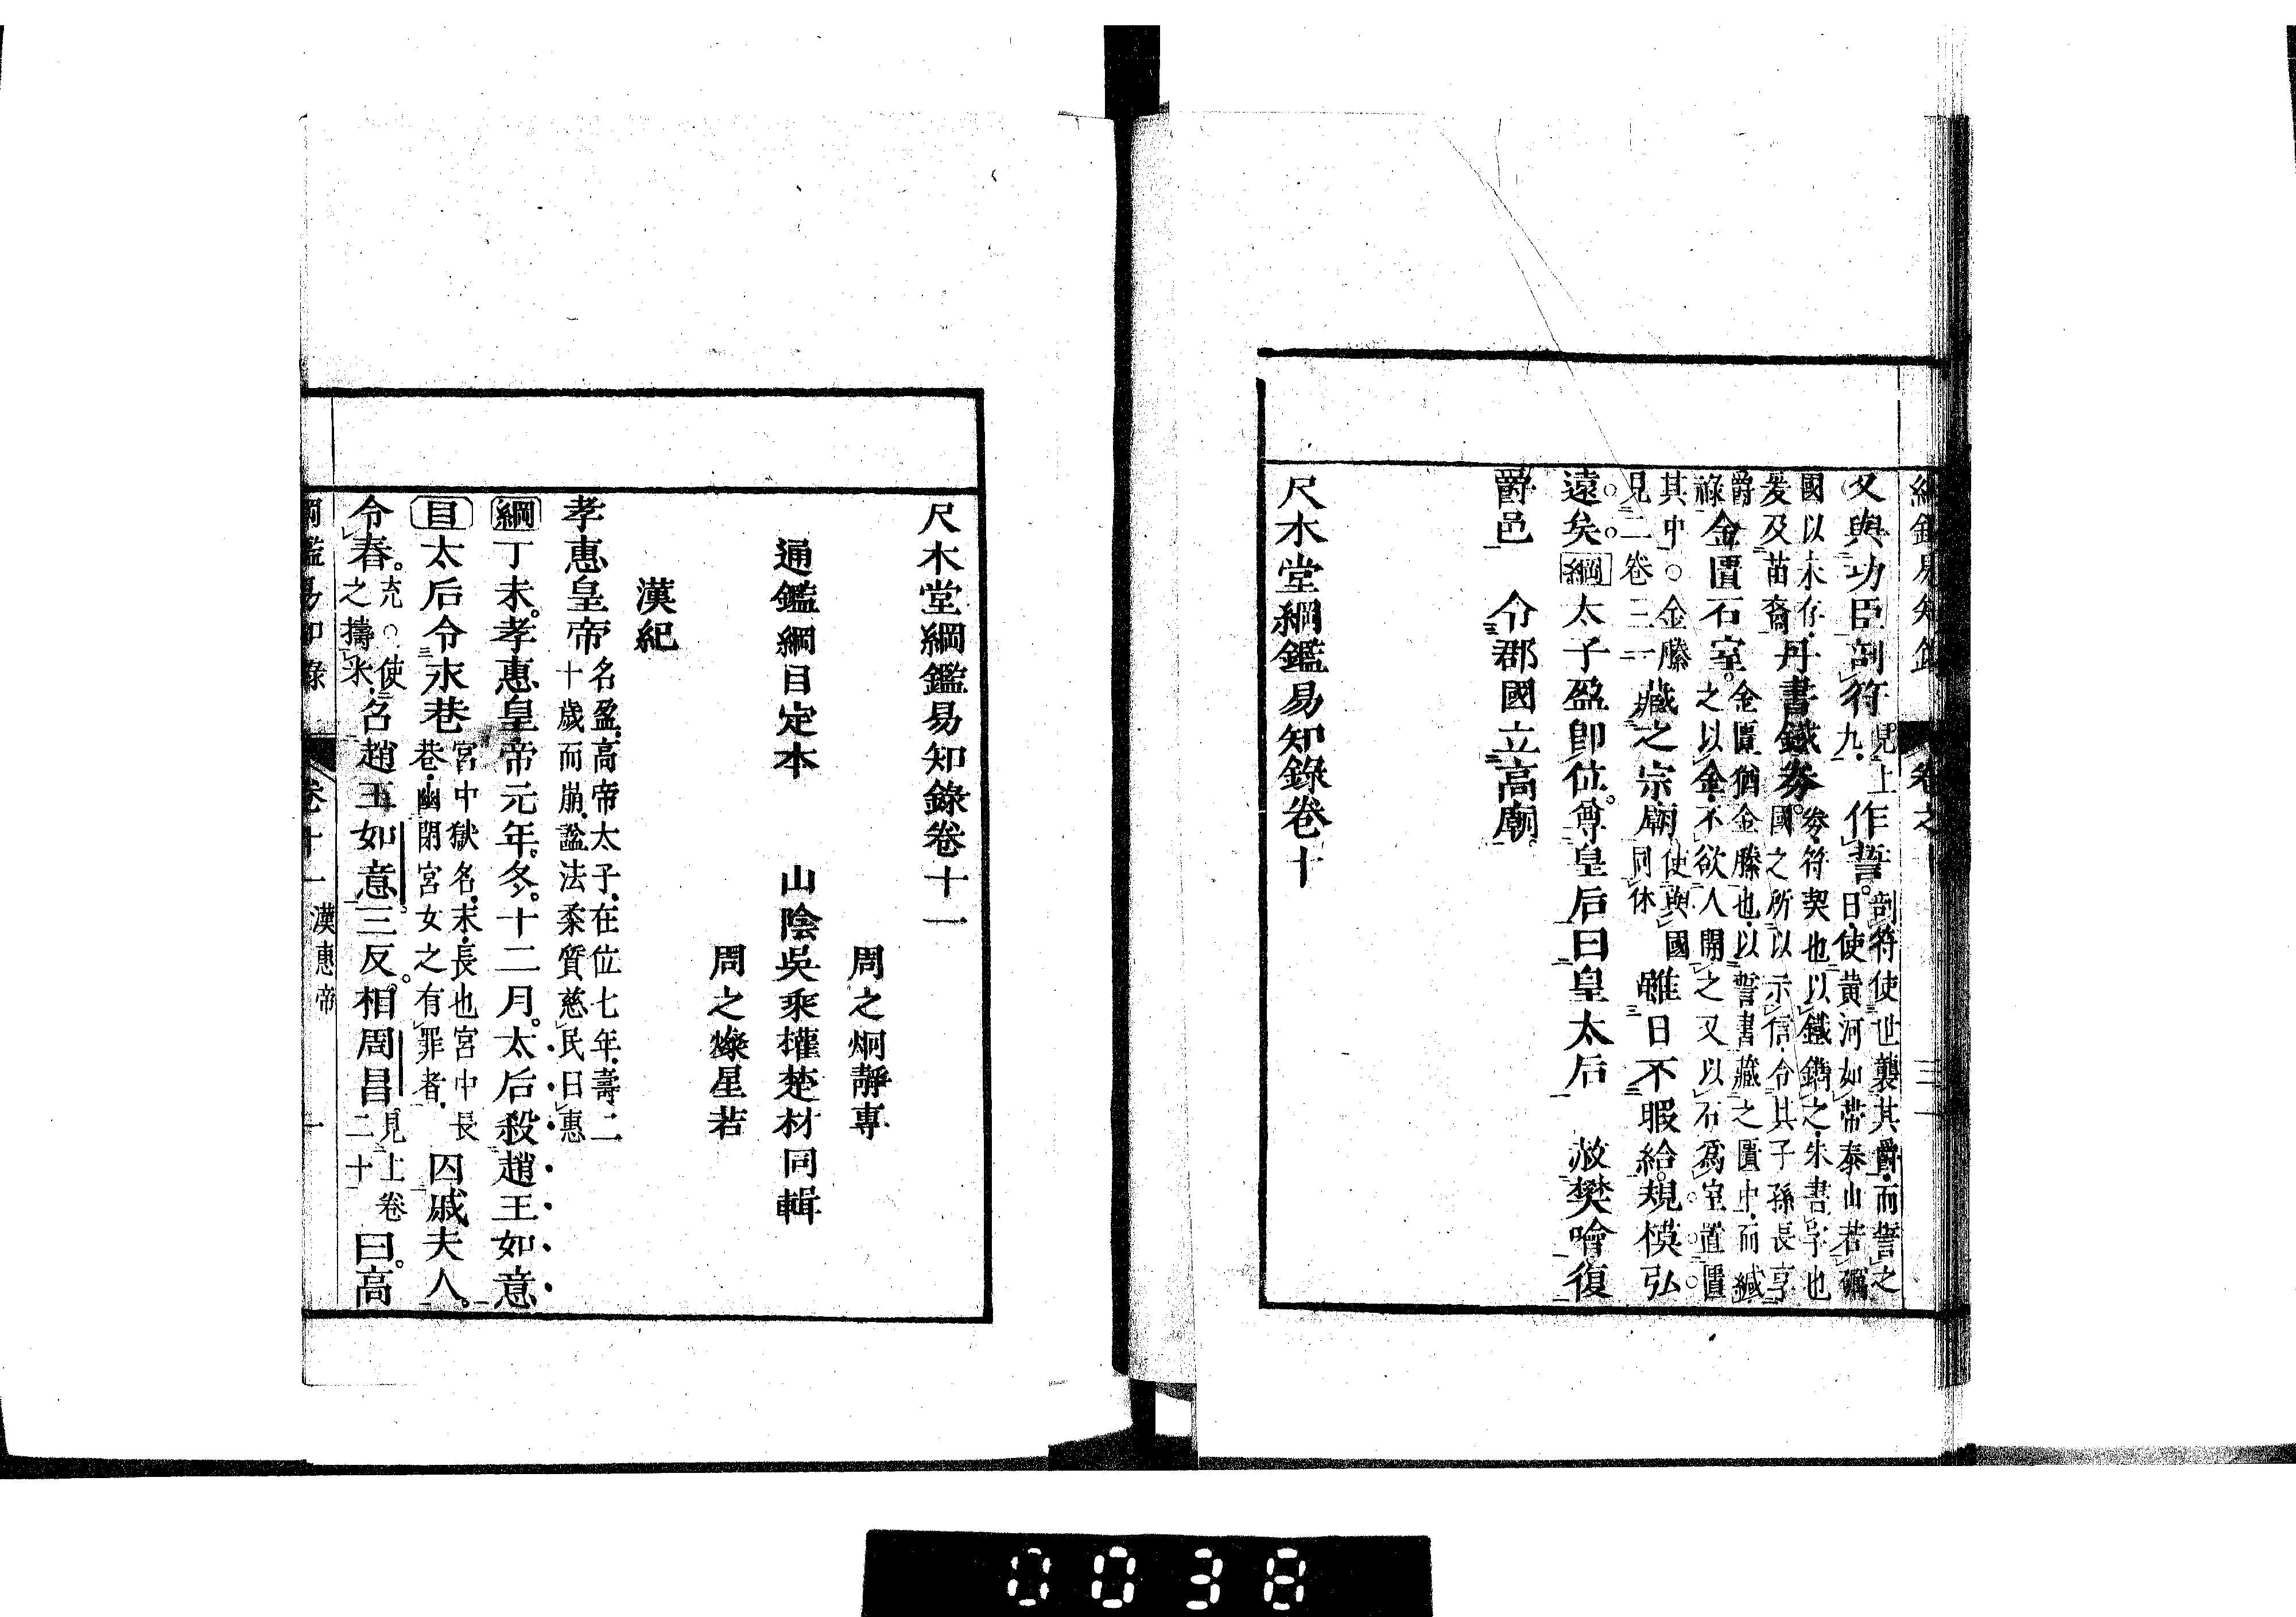 綱鑑易知錄　卷之十
又與功臣剖符見上九作誓剖符使世襲其爵而誓之曰使黃河如帶泰山若礪
國以永存爰及苗裔丹書鐵券券符契也以鐵鐫之朱書字也國之所以示信令其子孫長享
爵祿金匱石室金匱猶金縢也以誓書藏之匱中而緘之以金不欲人開之又以石爲室置匱
其中○金縢見二卷三一藏之宗廟使與國同休雖日不暇給規模弘
遠矣綱太子盈卽位尊皇后曰皇太后　赦樊噲復
爵邑　令郡國立高廟
尺木堂綱鑑易知錄卷十
尺木堂綱鑑易知錄卷十一
周之炯靜專
通鑑綱目定本　山陰吳乘權楚材同輯
周之燦星若
漢紀
孝惠皇帝名盈高帝太子在位七年壽二十歲而崩諡法柔質慈民曰惠
綱丁未孝惠皇帝元年冬十二月太后殺趙王如意
目太后令永巷宮中獄名永長也宮中長巷幽閉宮女之有罪者囚戚夫人
令春充○使之擣米名趙王如意三反相周昌見上卷二十曰高
綱鑑易知錄　卷十一　漢惠帝　一
0038